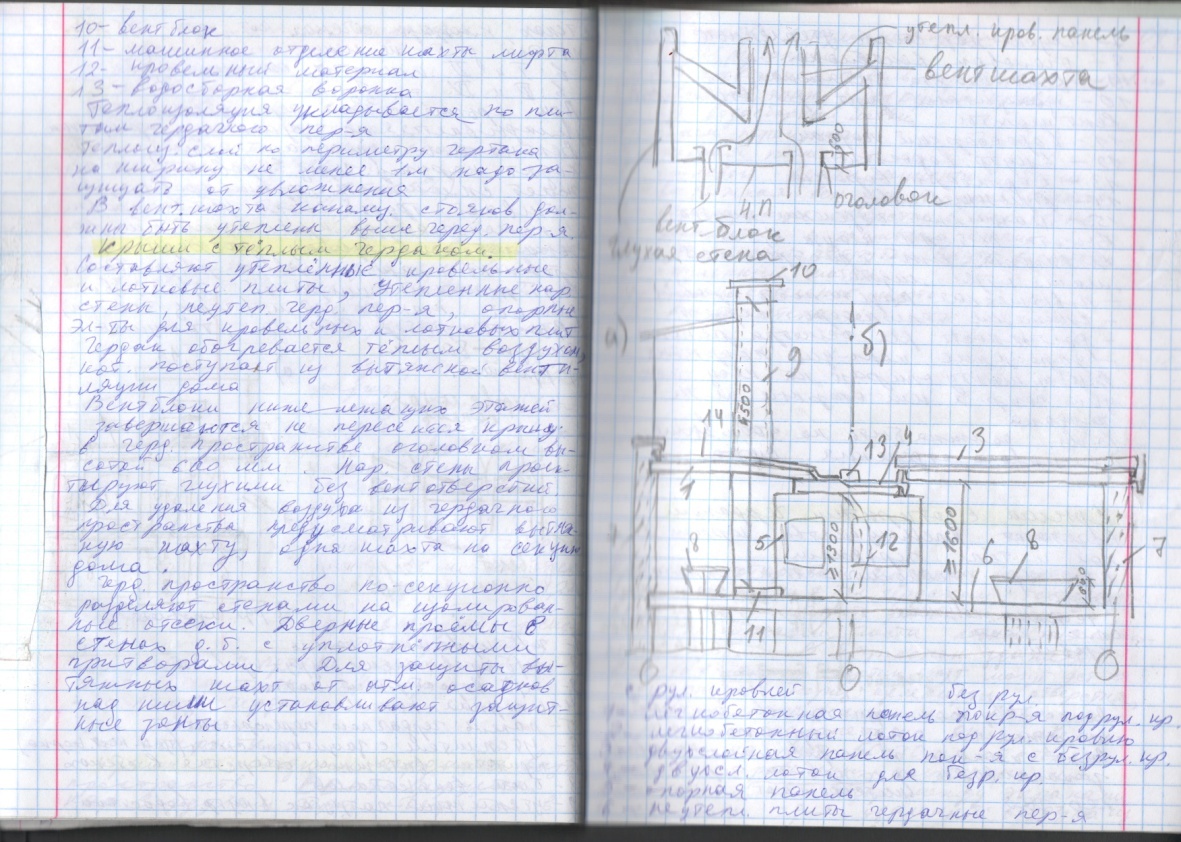 10- вент блок
11- машинное отделение шахты лифта
12- кровельный материал
13- водосборная воронка
Теплоизоляция укладывается по пли-
там чердачного пер-я
теплоиз слой по периметру чердака
на ширину не менее 1м надо за-
щищать от увлажнения
В вент.шахта канализ. стояков дол-
жны быть утеплены выше черд. пер-я.
Крыши с тёплым чердаком.
Составляют утеплённые кровельные
и лотковые плиты, утепленные нар.
стены, неутеп черд. пер-я, опорные
эл-ты для кровельных и лотковых плит
Чердак обогревается тёплым воздухом,
кот. поступает из вытяжной венти-
ляции дома
Вентблоки ниже лежащих этажей
завершаются не пересекая крышу
в черд. пространстве оголовком вы-
сотой 600 мм. Нар. стены проек-
тируют глухими без вент отверстий.
Для удаления воздуха из чердачного
пространства предусматривают вытяж-
ную шахту, одна шахта на секцию
дома.
Черд. пространство по-секционно
разделяют стенами на изолирован-
ные отсеки. Дверные проёмы в
стенах д.б. с уплотнёнными
притворами. Для защиты вы-
тяжных шахт от атм. осадков
над ними устанавливают защит-
ные зонты
утепл. кров. панель
вентшахта
600
оголовок
ч.п
вент.блок
глухая стена
10
а)
б)
9
4500
14
13
4
3
1
8
5
≥1300
12
≥1600
6
8
600
7
11
рул. кровлей
без рул
легкобетонная панель покр-я под рул. кр.
легкобетонный лоток под рул. кровлю
двухслойная панель пок-я с безрул. кр.
двухсл. лоток для безр. кр.
опорная панель
неутепл. плиты чердачные пер-я